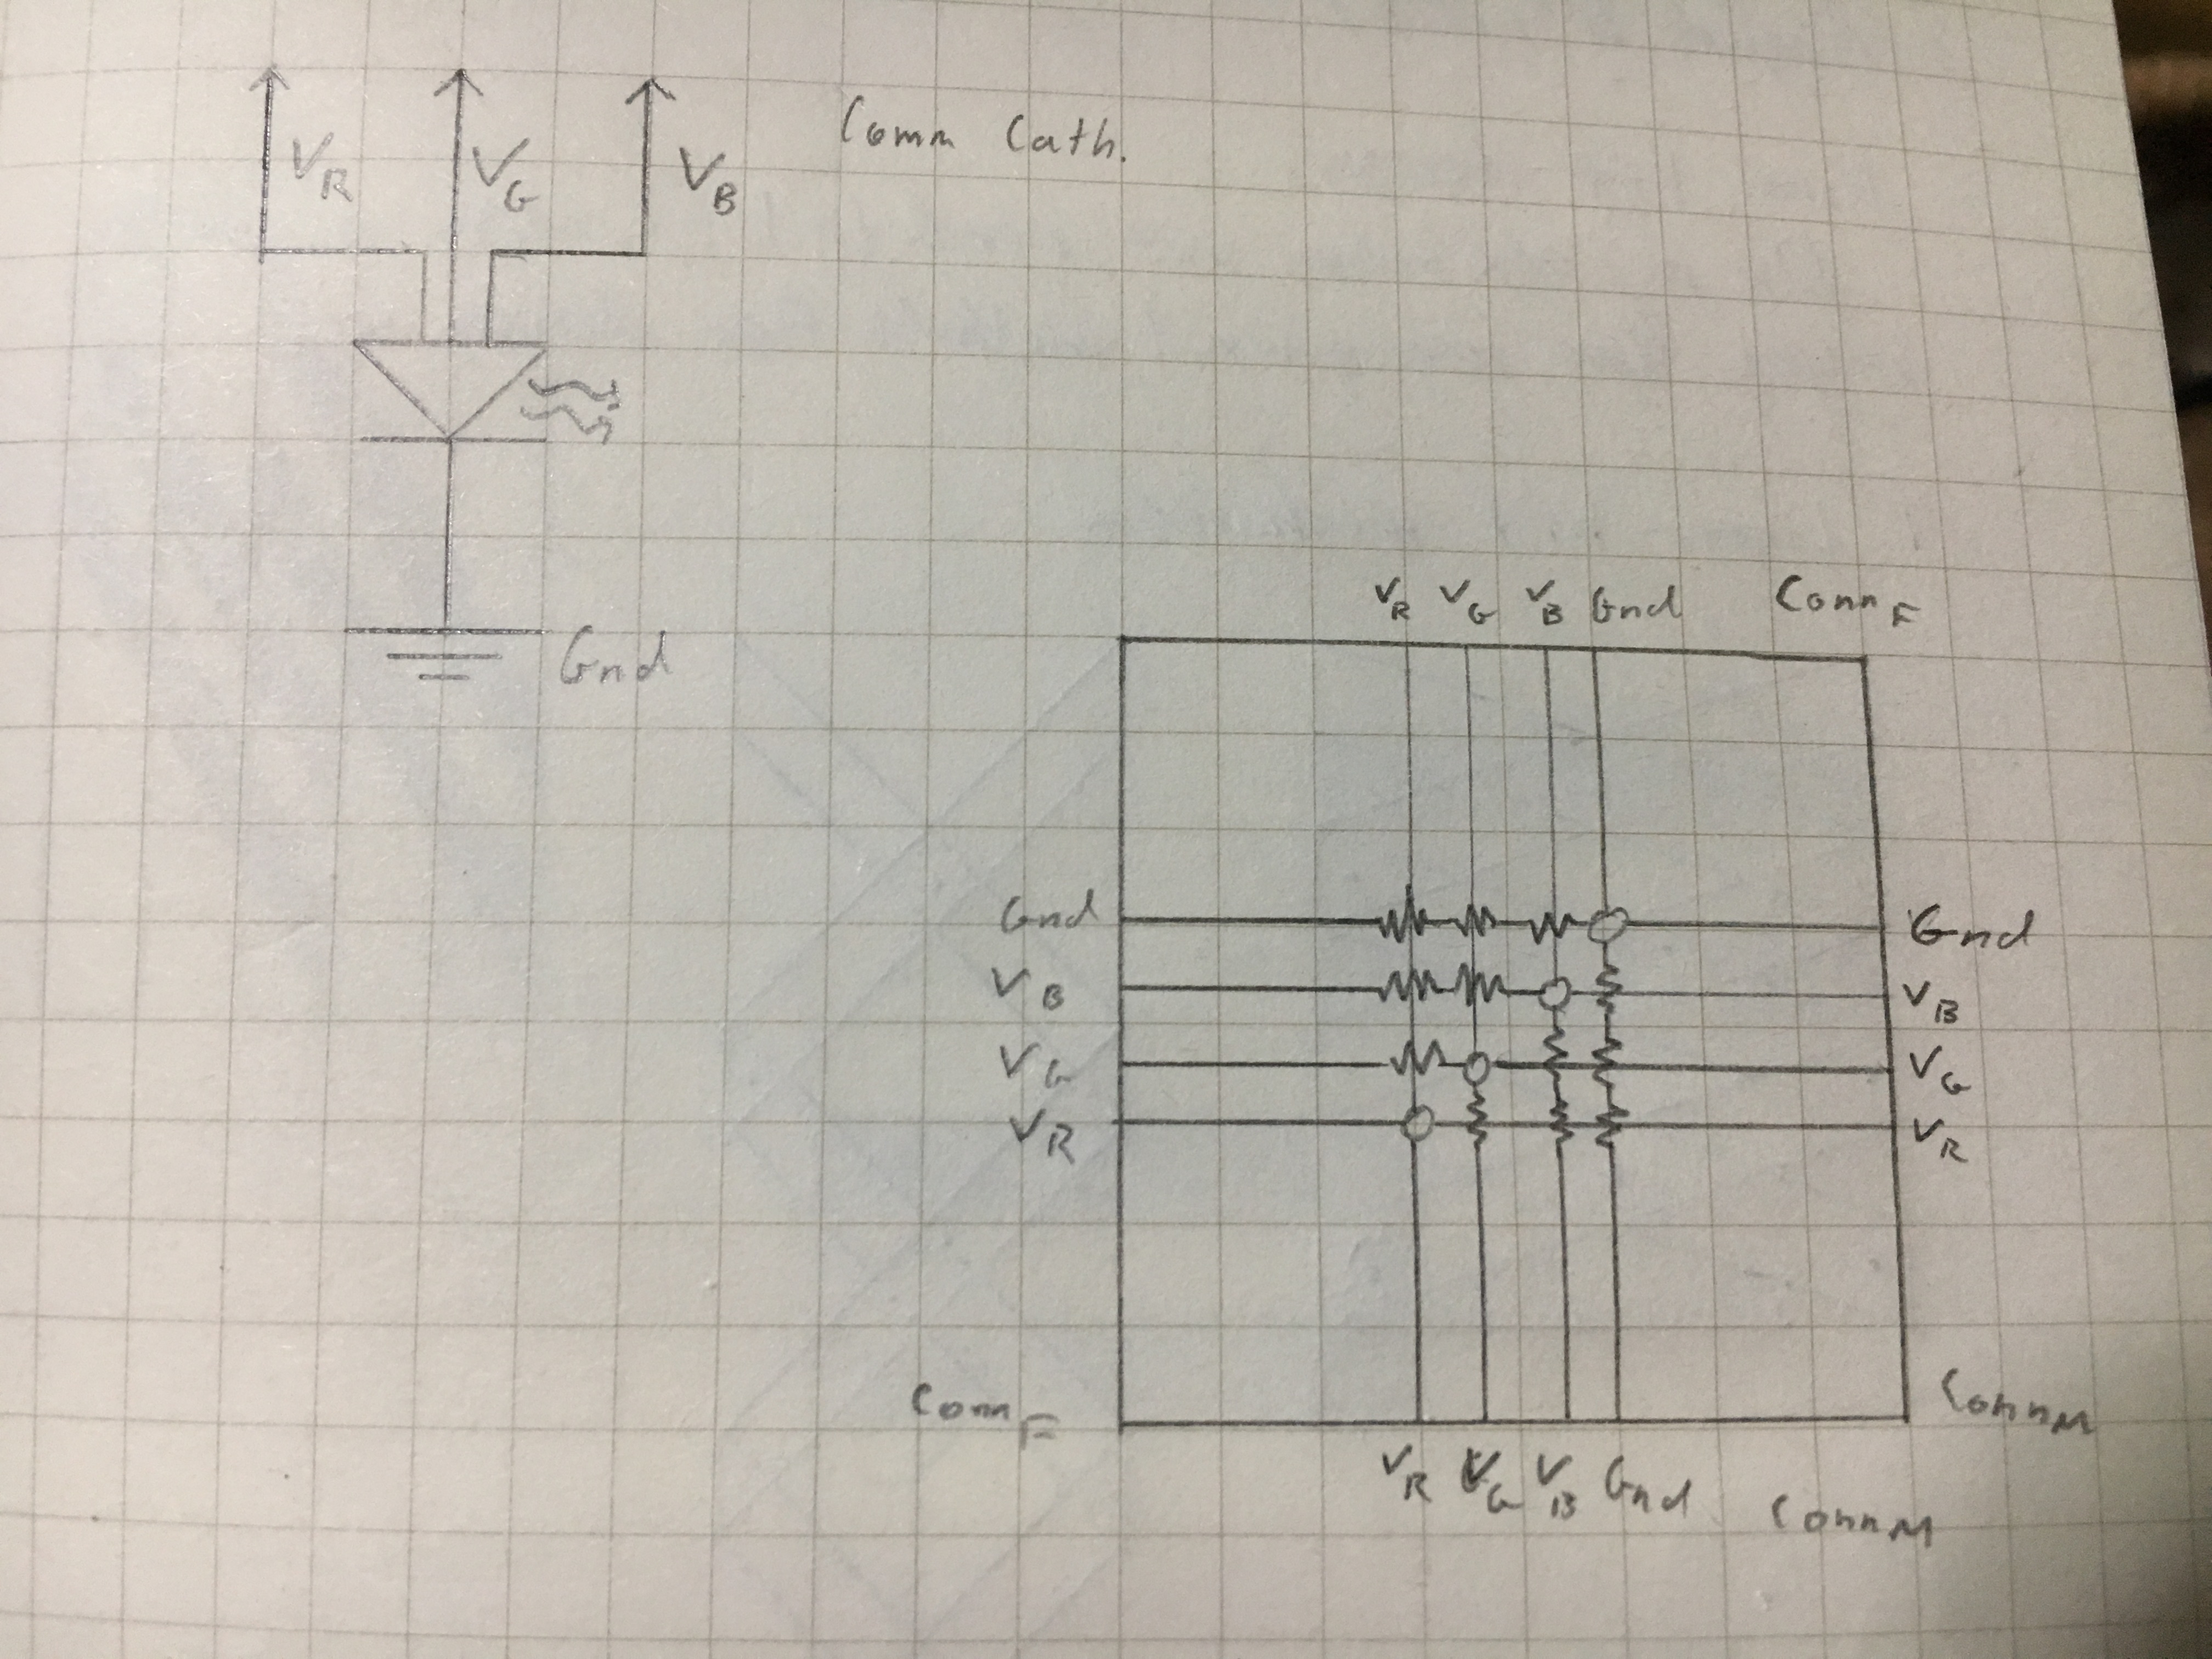 V_R V_G V_B Comm Cath.
Gnd
V_R V_G V_B Gnd Conn_F
Gnd Gnd
V_B V_B
V_G V_G
V_R V_R
Conn_F Conn_M
V_R V_G V_B Gnd Conn_M